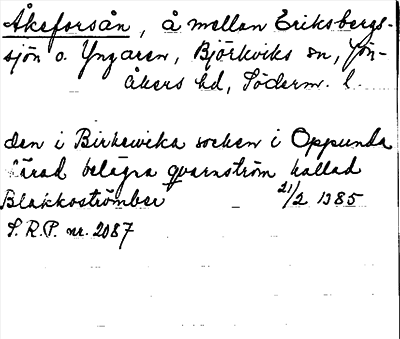 Åkeforsån, å mellan Eriksbergs-
sjön o. Yngaren, Björkviks sn, Jön-
åkers hd, Söderm. l.
den i Birkewika socken i Oppunda
härad belägna qvarnström kallad
Blakkoströmber 21/2 1385
S.R.P. nr. 2087